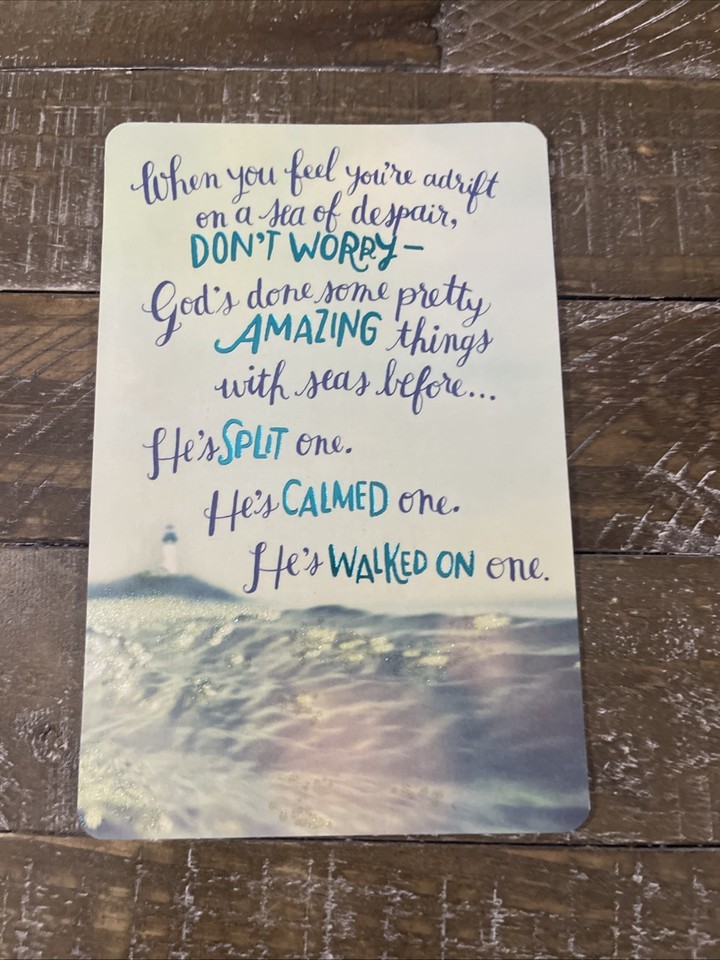 When you feel you're adrift
on a sea of despair,
DON'T WORRY—
God's done some pretty
AMAZING things
with seas before...
He's SPLIT one.
He's CALMED one.
He's WALKED ON one.